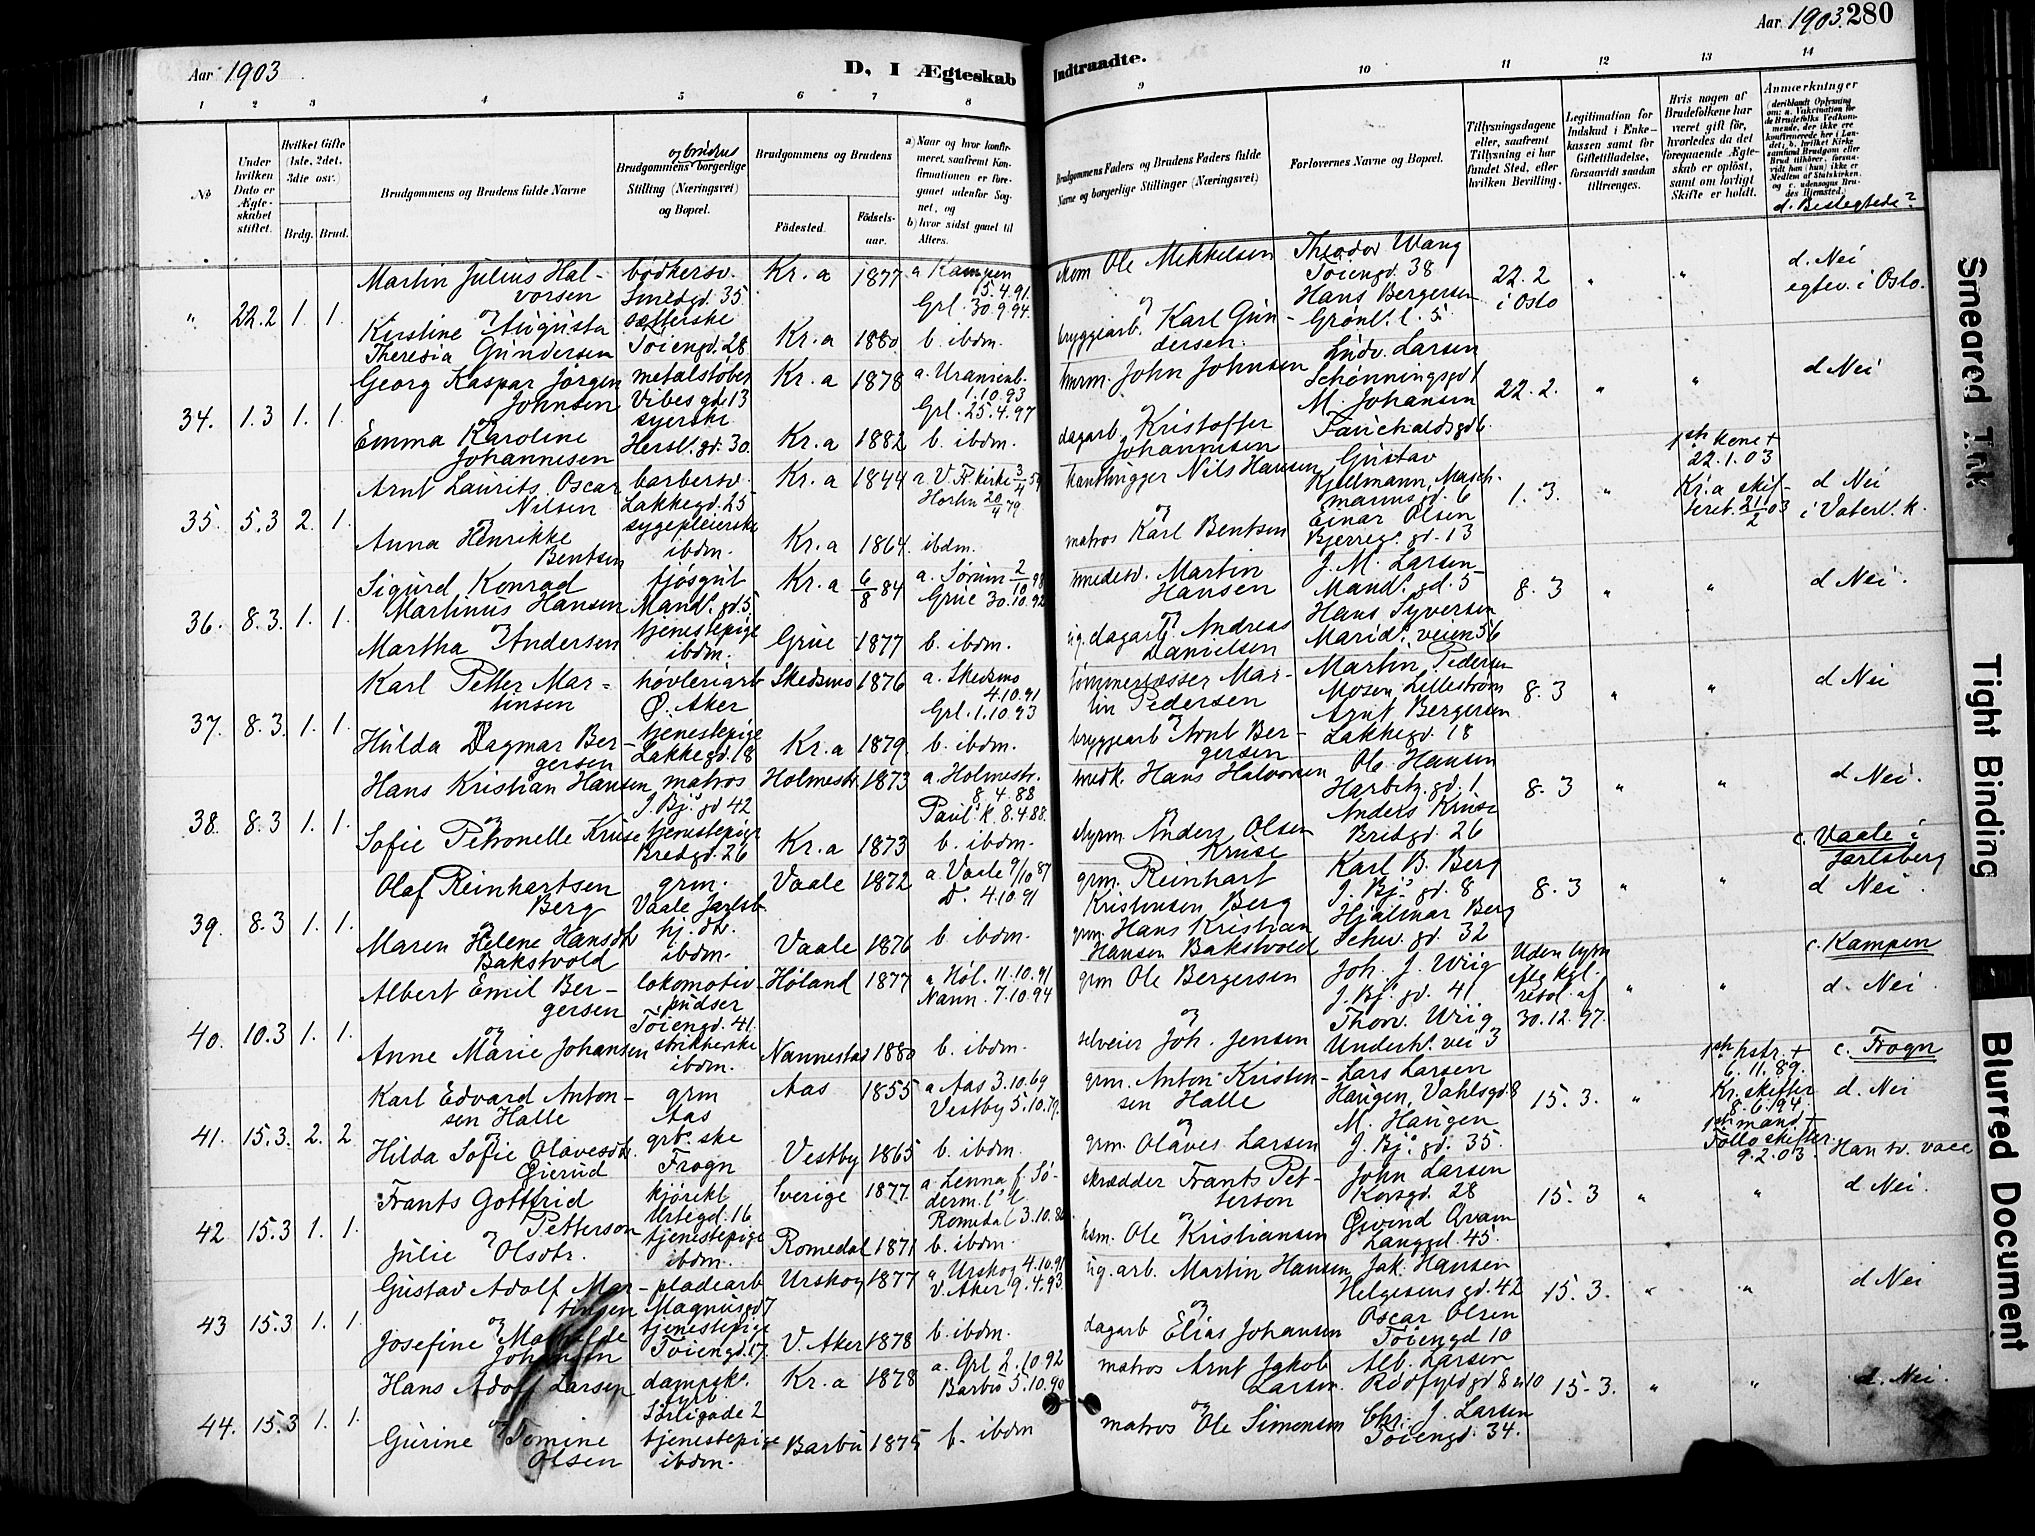 Aar 1903.
D, I Ægteskab
Indtraadte.
Aar 1903. 280
1 2 3 4 5 6 7 8
9 10 11 12 13 14
No
Under hvilken Dato er Ægteskabet stiftet.
Hvilket Gifte (1ste, 2det, 3die osv.)
Brdg. Brud.
Brudgommens og Brudens fulde Navne
Brudgommens og brudens borgerlige Stilling (Næringsvei) og Bopæl.
Brudgommens og Brudens
Födested.
Födselsaar.
a) Naar og hvor konfirmeret, saafremt Konfirmationen er foregaaet udenfor Sognet, og
b) hvor sidst gaaet til Alters.
Brudgommens Faders og Brudens Faders fulde Navne og borgerlige Stillinger (Næringsvei)
Forlovernes Navne og Bopæl.
Tillysningsdagene eller, saafremt Tillysning ei har fundet Sted, efter hvilken Bevilling.
Legitimation for Indskud i Enkekassen samt for Giftetilladelse, forsaavidt saadan tiltrænges.
Hvis nogen af Brudefolkene har været gift för, hvorledes da det foregaaende Ægteskab er oplöst, samt om lovligt Skifte er holdt.
Anmærkninger
(deriblandt Oplysning om: a. Vakcination for de Brudefolks Vedkommende, der ikke ere konfirmerede her i Landet; b. hvilket Kirkesamfund Brudgom eller Brud tilhörer, forsaavidt han (hun) ikke er Medlem af Statskirken, og c. udensogns Brudes Hjemsted.)
d. Beslegtede?
" 22.2 1. 1.
Martin Julius Halvorsen
og
Kirstine Augusta
Theresia Gundersen
bødkersv.
Smedgd. 35.
sætterske
Tøiengd. 28
Kr.a 1877
Kr.a 1880
a Kampen
15.4.91.
Grl. 30.9.94.
b. ibdm.
skom Ole Mikkelsen
og
bryggearb. Karl Gundersen.
Theodor Wang
Tøiengd. 38
Hans Bergersen
Grønl. l. 5.
22.2
i Oslo
" "
d. Nei
egtev. i Oslo.
34. 1.3 1. 1.
Georg Kaspar Jörgen
Johnsen
og
Emma Karoline
Johannesen
metalstøber
Vibes gd. 13
syerske
Hersl. gd. 30.
Kr.a 1878
Kr.a 1882
a. Uranienb.
1.10.93
Grl. 25.4.97
b. ibdm.
murm. John Johnsen
og
dagarb. Kristoffer
Johannesen
Ludv. Larsen
Schønningsgd 1
M. Johansen
22.2.
" "
d Nei
35. 5.3 2. 1.
Arnt Laurits Oscar
Nilsen
og
Anna Henrikke
Bentsen
barbersv.
Lakkegd. 25
sygepleierske
ibdm.
Kr.a 1844
Kr.a 1864
ibdm.
Nils Hansen
og
matros Karl Bentsen
Gustav
Hjelmann,
Einar Olsen
Bjerreg. gd. 13
1.3.
"
kone +
22.1.03
Kr.a
d Nei
i Vaterl. k.
36. 8.3. 1. 1.
Sigurd Konrad
Martinus Hansen
og
Martha Andersen
fjøsgut
Mandl. gd. 5
tjenestepige
ibdm.
Kr.a 6/8 84
Grue 1877
a. Sørum 2/10 98
Grue 30.10.92
b. ibdm.
smedesv. Martin
Hansen
og
dagarb. Andreas
Danielsen
J. M. Larsen
Mandl. gd. 5
Hans Syversen
Maridl. veien 56
8.3
" "
d Nei.
37. 8.3. 1. 1.
Karl Petter Martinsen
og
Hulda Dagmar Bergersen
høvleriarb
Ø. Aker
tjenestepige
Lakkegd. 18
Skedsmo 1876
Kr.a 1879
a. Skedsmo
4.10.91
Grl. 1.10.93
b. ibdm.
tømmerlæsser Martin Pedersen
og
bryggearb Arnt Bergersen
Martin Pedersen
Mosen, Lillestrøm
Arnt Bergersen
Lakkegd. 18
8.3
" "
d Nei
38. 8.3 1. 1.
Hans Kristian Hansen
og
Sofie Petronelle Kruse
matros
J. Bj. gd 42
tjenestepige
Bredgd. 26
Holmestr. 1873
Kr.a 1873
a. Holmestr.
8.4.88
Paul. k. 8.4.88.
b. ibdm.
Hans Halvorsen
og
styrm. Anders Olsen
Kruse
Ole Hansen
Harbitz. gd. 1
Anders Kruse
Bredgd. 26
8.3
" "
d Nei.
39. 8.3 1. 1.
Olaf Reinhartsen
Berg
og
Maren Helene Hansdt.
Bakstvold
grm.
Vaale Jarlsb.
hj. dt.
ibdm.
Vaale 1872
Vaale 1876
a. Vaale 9/10 87
Do. 4.10.91
b. ibdm.
grm. Reinhart
Kristensen Berg
grm. Hans Kristian
Hansen Bakstvold
Karl B. Berg
J. Bj. gd. 8
Hjalmar Berg
Schw. gd. 32
8.3
" "
c. Vaale i
Jarlsberg
d Nei.
40. 10.3 1. 1.
Albert Emil Bergersen
og
Anne Marie Johansen
lokomotivpudser
Tøiengd. 41.
strikkerske
ibdm.
Høland 1877
Nannestad 1880
a Høl. 11.10.91
Nann. 7.10.94
b. ibdm.
grm Ole Bergersen
og
selveier Joh. Jensen
Joh. J. Wiig
J. Bj. gd. 41
Thorv. Wiig
Underhl. vei 3
Uden lysn
efter kgl.
resol. af
30.12.97.
" "
c. Kampen
d. Nei.
41. 15.3. 2. 2
Karl Edvard Antonsen Halle
og
Hilda Sofie Olavesdt.
Gierud
grm
Aas
grb. ske
Frogn
Aas 1855
Vestby 1865
a Aas 3.10.69
Vestby 5.10.79.
b. ibdm.
grm. Anton Kristensen Halle
og
grm. Olaves Larsen
Lars Larsen
Haugen, Vahlsgd. 8
M. Haugen
J. Bj. gd. 35.
15.3.
"
hstr. +
6.11.89.
Kr. skifter
8.6.94.
mand +
Follo skifter
9.2.03.
c. Frogn
d. Nei
Han v. vacc
42. 15.3 1. 1.
Frants Gottfrid
Petterson
og
Julie Olsdtr.
kjørekl
Urtegd. 16
tjenestepige
ibdm.
Sverige 1877.
Romedal 1871
a. Lenna f. Söderm.
b. ibdm.
skrædder Frants Petterson
og
hsm. Ole Kristiansen
John Larsen
Korsgd. 28
Øivind Qvam
Langgd. 45.
15.3
" "
d Nei.
43 15.3 1. 1.
Gustav Adolf Martinsen
og
Josefine Mathilde
Johansen
pladearb
Magnusgd 7
tjenestepige
Tøiengd. 17.
Urskog 1877
V. Aker 1878
a. Urskog 4.10.91
V. Aker 9.4.93.
b. ibdm.
arb. Martin Hansen
og
dagarb Elias Johansen
Jak. Hansen
Helgesens gd. 42
Oscar Olsen
Tøiengd 10
15.3.
" "
d Nei
44. 15.3 1. 1.
Hans Adolf Larsen
og
Gurine Tomine
Olsen
dampsk.
fyrb.
Sørligade 2
tjenestepige
ibdm.
Kr.a 1878
Barbu 1875
a. Grl 2.10.92
Barbu 5.10.90
b. ibdm
matros Arnt Jakob
Larsen.
og
matros Ole Simonsen
Alb. Larsen
Rødfyldgd 8 & 10
Chr. J. Larsen
Tøiengd. 34.
15.3.
" "
d. Nei.
Smeared Ink
Tight Binding
Blurred Document